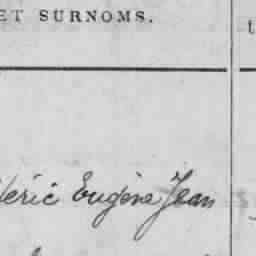 ET SURNOMS.
deric Eugène Jean